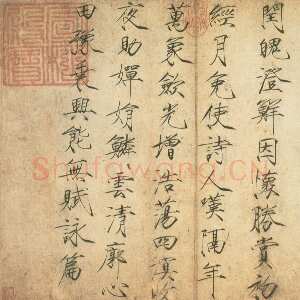 閏魄澄鮮因懷勝賞初
經月免使詩人嘆隔年
萬象斂光增浩蕩四溟收
夜助嬋娟鱗雲清廓心
田豫乘興能無賦詠篇
Shufawang.CN